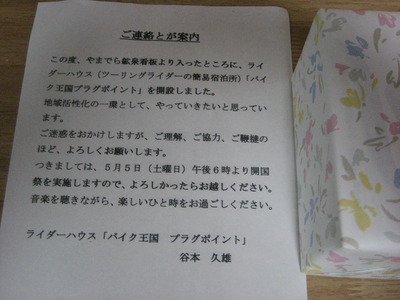 ご連絡とが案内
この度、やまでら鉱泉看板より入ったところに、ライ
ダーハウス（ツーリングライダーの簡易宿泊所）「バイ
ク王国プラグポイント」を開設しました。
地域活性化の一環として、やっていきたいと思ってい
ます。
ご迷惑をおかけしますが、ご理解、ご協力、ご鞭撻の
ほど、よろしくお願いします。
つきましては、５月５日（土曜日）午後６時より開国
祭を実施しますので、よろしかったらお越しください。
音楽を聴きながら、楽しいひと時をお過ごしください。
ライダーハウス「バイク王国　プラグポイント」
谷本　久雄